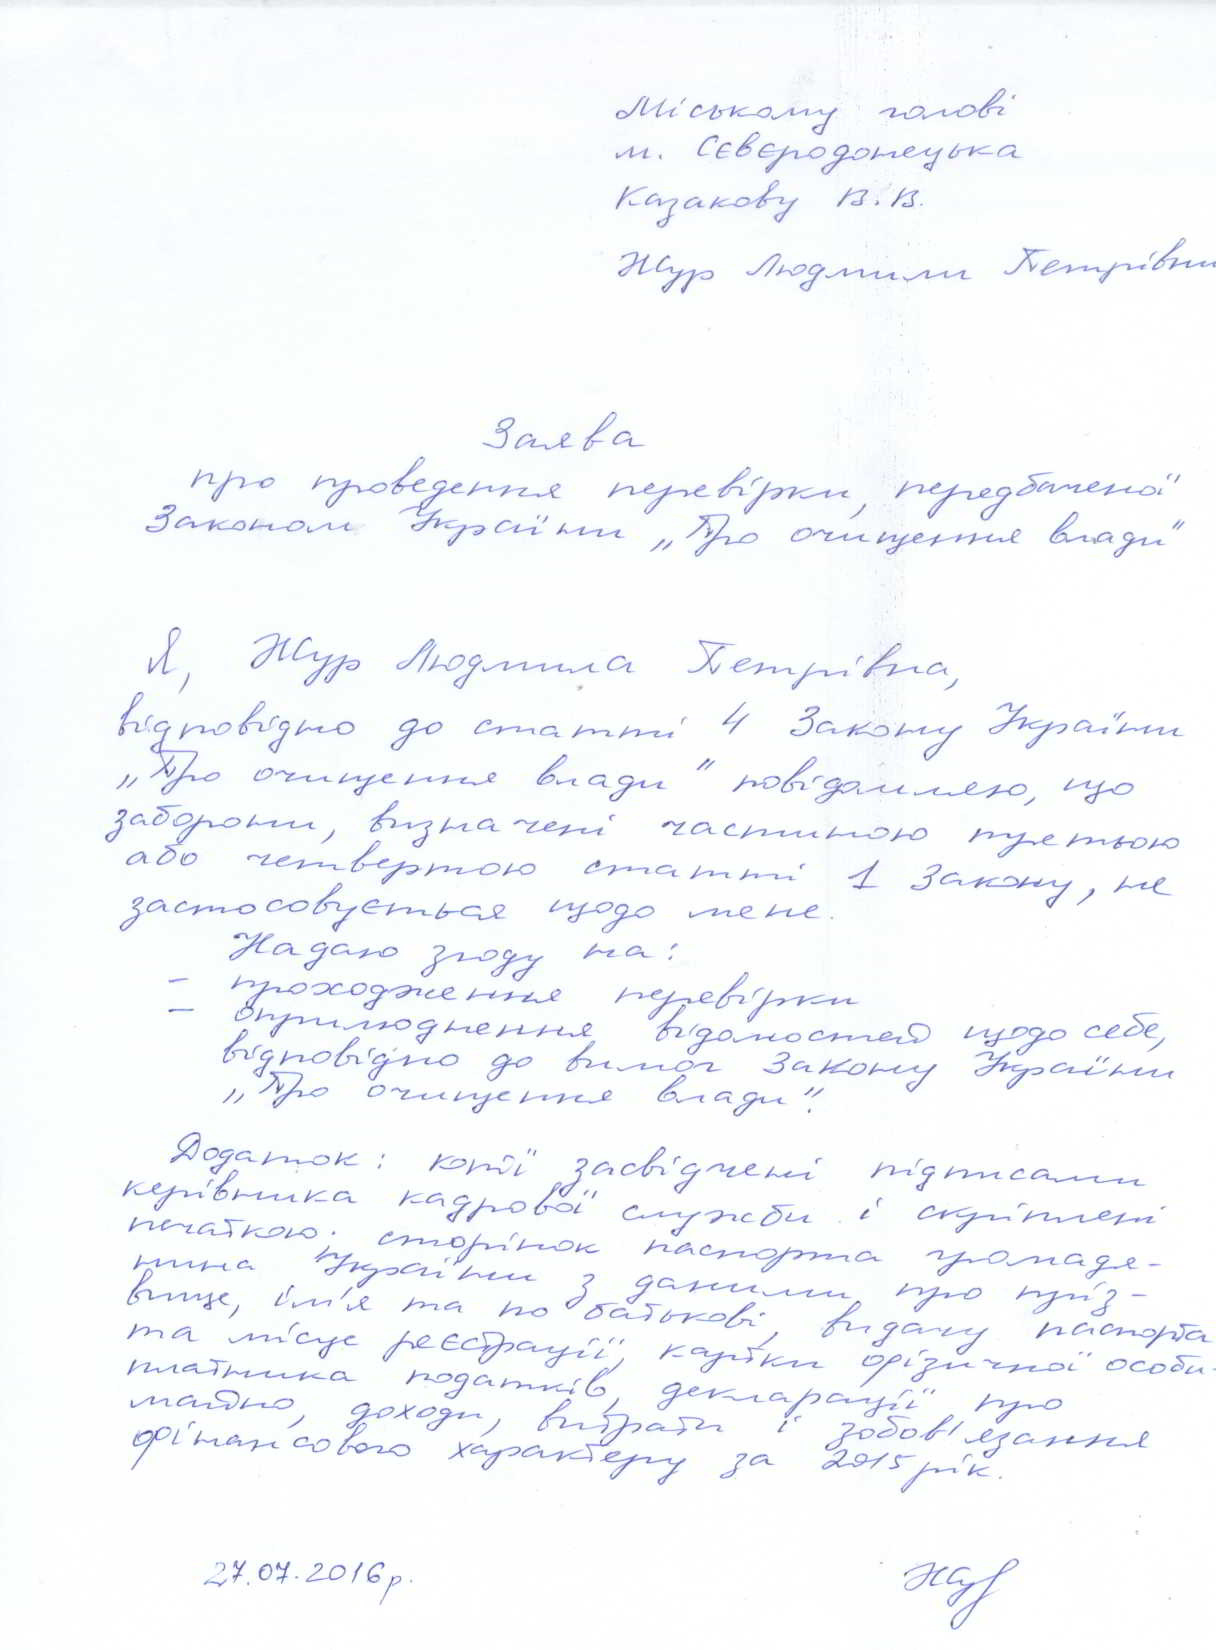 Міському голові
м. Сєвєродонецька
Казакову В.В.
Жур Людмили Петрівни
Заява
про проведення перевірки, передбаченої
Законом України „Про очищення влади"
Я, Жур Людмила Петрівна,
відповідно до статті 4 Закону України
„Про очищення влади" повідомляю, що
заборони, визначені частиною третьою
або четвертою статті 1 Закону, не
застосовується щодо мене.
Надаю згоду на:
- проходження перевірки
- оприлюднення відомостей щодо себе,
відповідно до вимог Закону України
„Про очищення влади".
Додаток: копії засвідчені підписами
керівника кадрової служби і скріплені
печаткою: сторінок паспорта громадя-
нина України з даними про пріз-
вище, ім'я та по батькові, видачу паспорта
та місце реєстрації, картки фізичної особи-
платника податків, декларації про
майно, доходи, витрати і зобов'язання
фінансового характеру за 2015 рік.
27.07.2016р. Жур